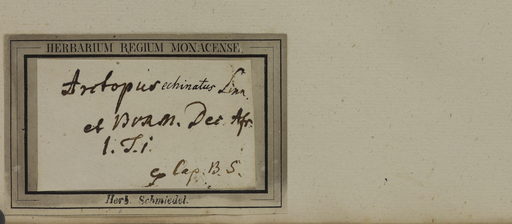 HERBARIUM REGIUM MONACENSE.
Arctopus echinatus Linn.
et Burm. Dec. Afr.
1. T. i.
Cap. B. S.
Herb. Schmiedel.